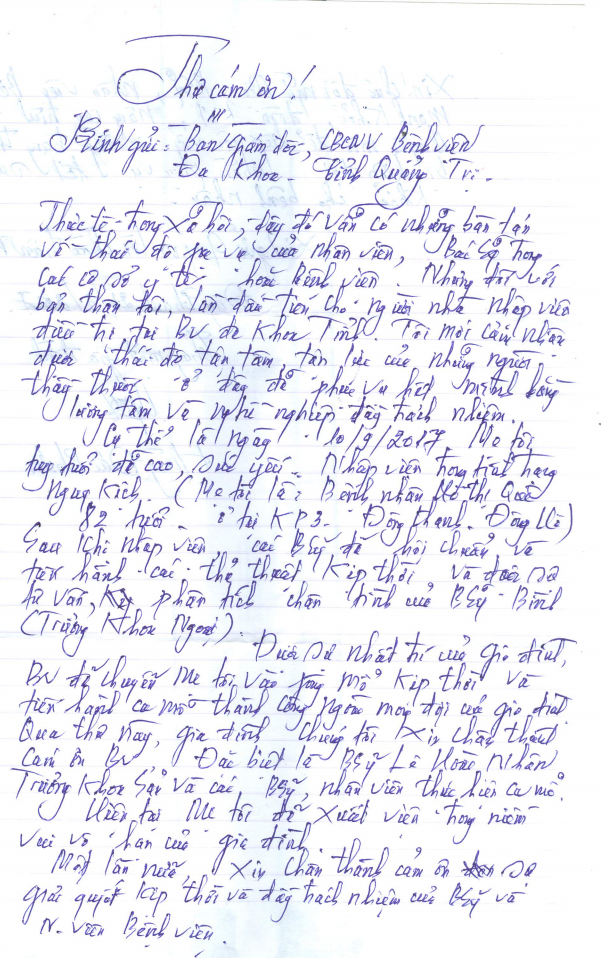 Thư cám ơn!
Kính gửi: Ban Giám đốc, CBCNV Bệnh viện
Đa Khoa - tỉnh Quảng Trị -
Thực tế - trong xã hội, đây đó vẫn có những bàn tán
về thái độ phục vụ của nhân viên, Bác sỹ trong
các cơ sở y tế hoặc Bệnh viện Nhưng đối với
bản thân tôi, lần đầu tiên cho người nhà nhập viện
điều trị tại BV đa Khoa Tỉnh. Tôi mới cảm nhận
được thái độ tận tâm, tận lực của những người
thầy thuốc ở đây đã phục vụ hết mình bằng
lương tâm và nghề nghiệp đầy trách nhiệm.
Cụ thể là ngày 10/9/2017 Mẹ tôi
tuy tuổi đã cao, sức yếu - Nhập viện trong tình trạng
nguy kịch. (Mẹ tôi là: Bệnh nhân Hồ Thị Quế
82 tuổi - ở tại KP3 - Đông Thanh - Đông Hà)
Sau khi nhập viện, các BSỹ đã hội chuẩn và
tiến hành các thủ thuật kịp thời và được sự
tư vấn, phân tích chân tình của BSỹ Bình
(Trưởng Khoa Ngoại).
Được sự nhất trí của gia đình,
BV đã chuyển Mẹ tôi vào phòng mổ kịp thời và
tiến hành ca mổ thành công ngoài mong đợi của gia đình
Qua thư này, gia đình chúng tôi xin chân thành
cám ơn BV Đặc biệt là BSỹ Lê Hoặc Nhân
Trưởng Khoa Sản và các BSỹ, nhân viên thực hiện ca mổ.
Hiện tại Mẹ tôi đã xuất viện trong niềm
vui vô hạn của gia đình
Một lần nữa, xin chân thành cảm ơn sự
giải quyết kịp thời và đầy trách nhiệm của BSỹ và
N. viên Bệnh viện.